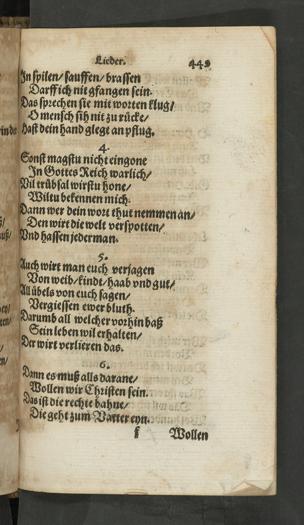 Lieder. 449
In spilen/ sauffen/ brassen
Darff ich nit gfangen sein.
Das sprechen sie mit worten klug/
O mensch sih nit zu rücke/
Hast dein hand glegt an pflug.
4.
Sonst magstu nicht eingone
In Gottes Reich warlich/
Vil trübsal wirstu hone/
Wiltu bekennen mich.
Dann wer dein wort thut nemmen an/
Den wirt die welt verspotten/
Vnd hassen jederman.
5.
Auch wirt man euch verjagen
Von weib/ kindt/ haab vnd gut/
All übels von euch sagen/
Vergiessen ewer bluth.
Darumb all welcher vorhin baß
Sein leben wil erhalten/
Der wirt verlieren das.
6.
Dann es muß alls darane/
Wollen wir Christen sein.
Das ist die rechte bahne/
Die geht zum Vatter eyn.
f Wollen